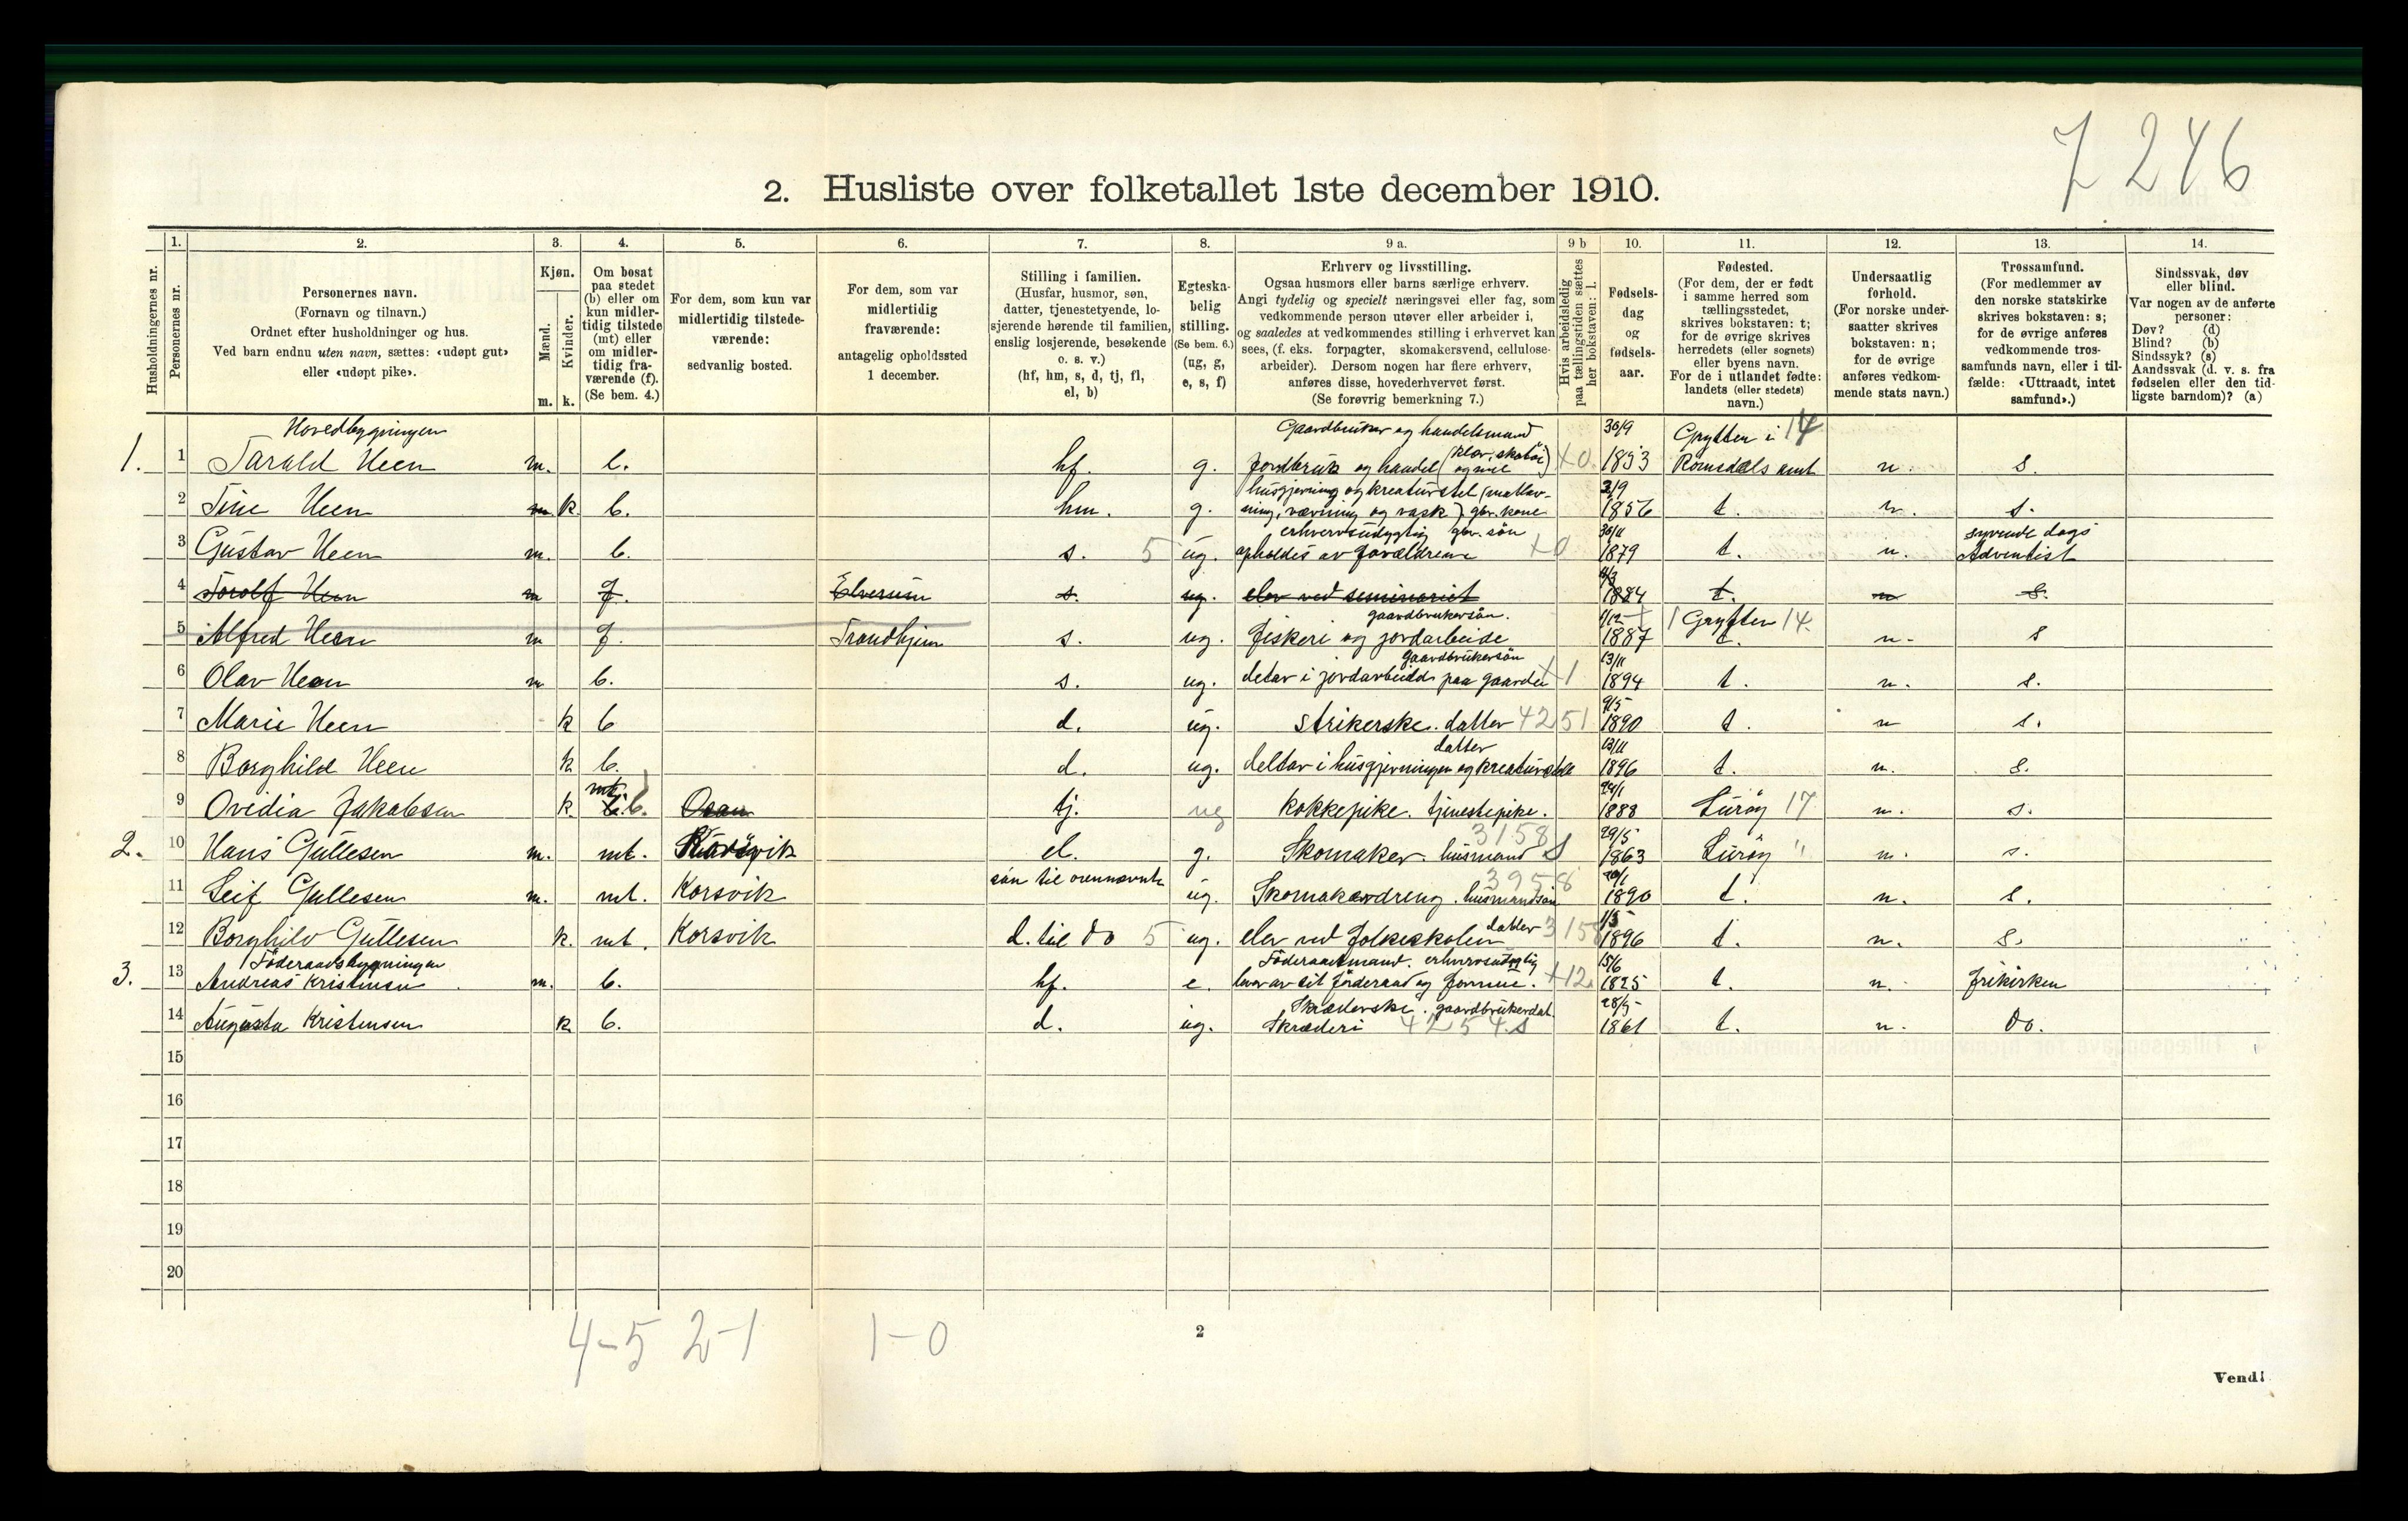 7 246
2. Husliste over folketallet 1ste december 1910.
Husholdningernes nr.
1.
Personernes nr.
2.
Personernes navn.
(Fornavn og tilnavn.)
Ordnet efter husholdninger og hus.
Ved barn endnu uten navn, sættes: «udøpt gut»
eller «udøpt pike».
3.
Kjøn.
Mænd.
Kvinder.
m. k.
4.
Om bosat
paa stedet
(b) eller om
kun midler-
tidig tilstede
(mt) eller
om midler-
tidig fra-
værende (f).
(Se bem. 4.)
5.
For dem, som kun var
midlertidig tilstede-
værende:
sedvanlig bosted.
6.
For dem, som var
midlertidig
fraværende:
antagelig opholdssted
1 december.
7.
Stilling i familien.
(Husfar, husmor, søn,
datter, tjenestetyende, lo-
sjerende hørende til familien,
enslig losjerende, besøkende
o. s. v.)
(hf, hm, s, d, tj, fl,
el, b)
8.
Egteska-
belig
stilling.
(Se bem. 6.)
(ug, g,
e, s, f)
9 a.
Erhverv og livsstilling.
Ogsaa husmors eller barns særlige erhverv.
Angi tydelig og specielt næringsvei eller fag, som
vedkommende person utøver eller arbeider i,
og saaledes at vedkommendes stilling i erhvervet kan
sees, (f. eks. forpagter, skomakersvend, cellulose-
arbeider). Dersom nogen har flere erhverv,
anføres disse, hovederhvervet først.
(Se forøvrig bemerkning 7.)
9 b
Hvis arbeidsledig
paa tællingstiden sættes
her bokstaven: l.
10.
Fødsels-
dag
og
fødsels-
aar.
11.
Fødested.
(For dem, der er født
i samme herred som
tællingsstedet,
skrives bokstaven: t;
for de øvrige skrives
herredets (eller sognets)
eller byens navn.
For de i utlandet fødte:
landets (eller stedets)
navn.)
12.
Undersaatlig
forhold.
(For norske under-
saatter skrives
bokstaven: n;
for de øvrige
anføres vedkom-
mende stats navn.)
13.
Trossamfund.
(For medlemmer av
den norske statskirke
skrives bokstaven: s;
for de øvrige anføres
vedkommende tros-
samfunds navn, eller i til-
fælde: «Uttraadt, intet
samfund».)
14.
Sindssvak, døv
eller blind.
Var nogen av de anførte
personer:
Døv? (d)
Blind? (b)
Sindssyk? (s)
Aandssvak (d. v. s. fra
fødselen eller den tid-
ligste barndom)? (a)
Hovedbygningen Gaardbruker og handelsmand 30/9 Grytten i 14
1. 1 Tarald Heen m. b. hf. g. Jordbruk og handel (klær, skotøi og mel) +0 1853 Romsdals amt n. s.
husgjerning og kreaturstel (matlav- 2/9
2 Tine Heen m k b. hm. g. ning, vævning og vask) gbr. kone 1856 t. n. s.
erhvervsudygtig gbr. søn 30/11 syvende dags
3 Gustav Heen m. b. s. 5 ug. opholdes av forældrene +0 1879 t. n. Adventist
4 Torolf Heen m f. Elverum s. ug. elev ved seminariet 1884 t. n s.
gaardbrukersøn. 1/12 Grytten 14.
5 Alfred Heen m f. Trondhjem s. ug. fiskeri og jordarbeide 1887 t. n. s
gaardbrukersøn 13/11
6 Olav Heen m b. s. ug. deltar i jordarbeidet paa gaarden +1 1894 t. n. s.
9/5
7 Marie Heen k b d. ug. Strikerske. datter 4251 1890 t. n s.
datter 13/11
8 Borghild Heen k b. d. ug. deltar i husgjerningen og kreaturstel 1896 t. n. s.
mt. 24/1
9 Ovidia Jakobsen k. b. tj. ug kokkepike. tjenestepike. 1888 Lurøy 17 n. s.
3158 29/5
2. 10 Hans Gullesen m. mt. Korsvik el. g. Skomaker. husmand S 1863 Lurøy " n. s.
søn til ovennævnte 3958 20/1
11 Leif Gullesen m. mt. Korsvik ug. Skomakerdreng. husmandssøn 1890 t. n. s.
datter 3158 1/5
12 Borghild Gullesen k. mt. Korsvik d. til do 5 ug. elev ved folkeskolen 1896 t. n. s.
Föderaadsbygningen Föderaadsmand. erhvervsudygtig 15/6
3. 13 Andreas Kristensen m. b. hf. e. lever av sit föderaad og formue. +12. 1825 t. n. frikirken
Skrædderske. gaardbrukerdat. 28/5
14 Augusta Kristensen k b. d. ug. Skræderi 4254 s 1861 t. n. do.
15
16
17
18
19
20
4-5 2-1 1-0
2
Vend!